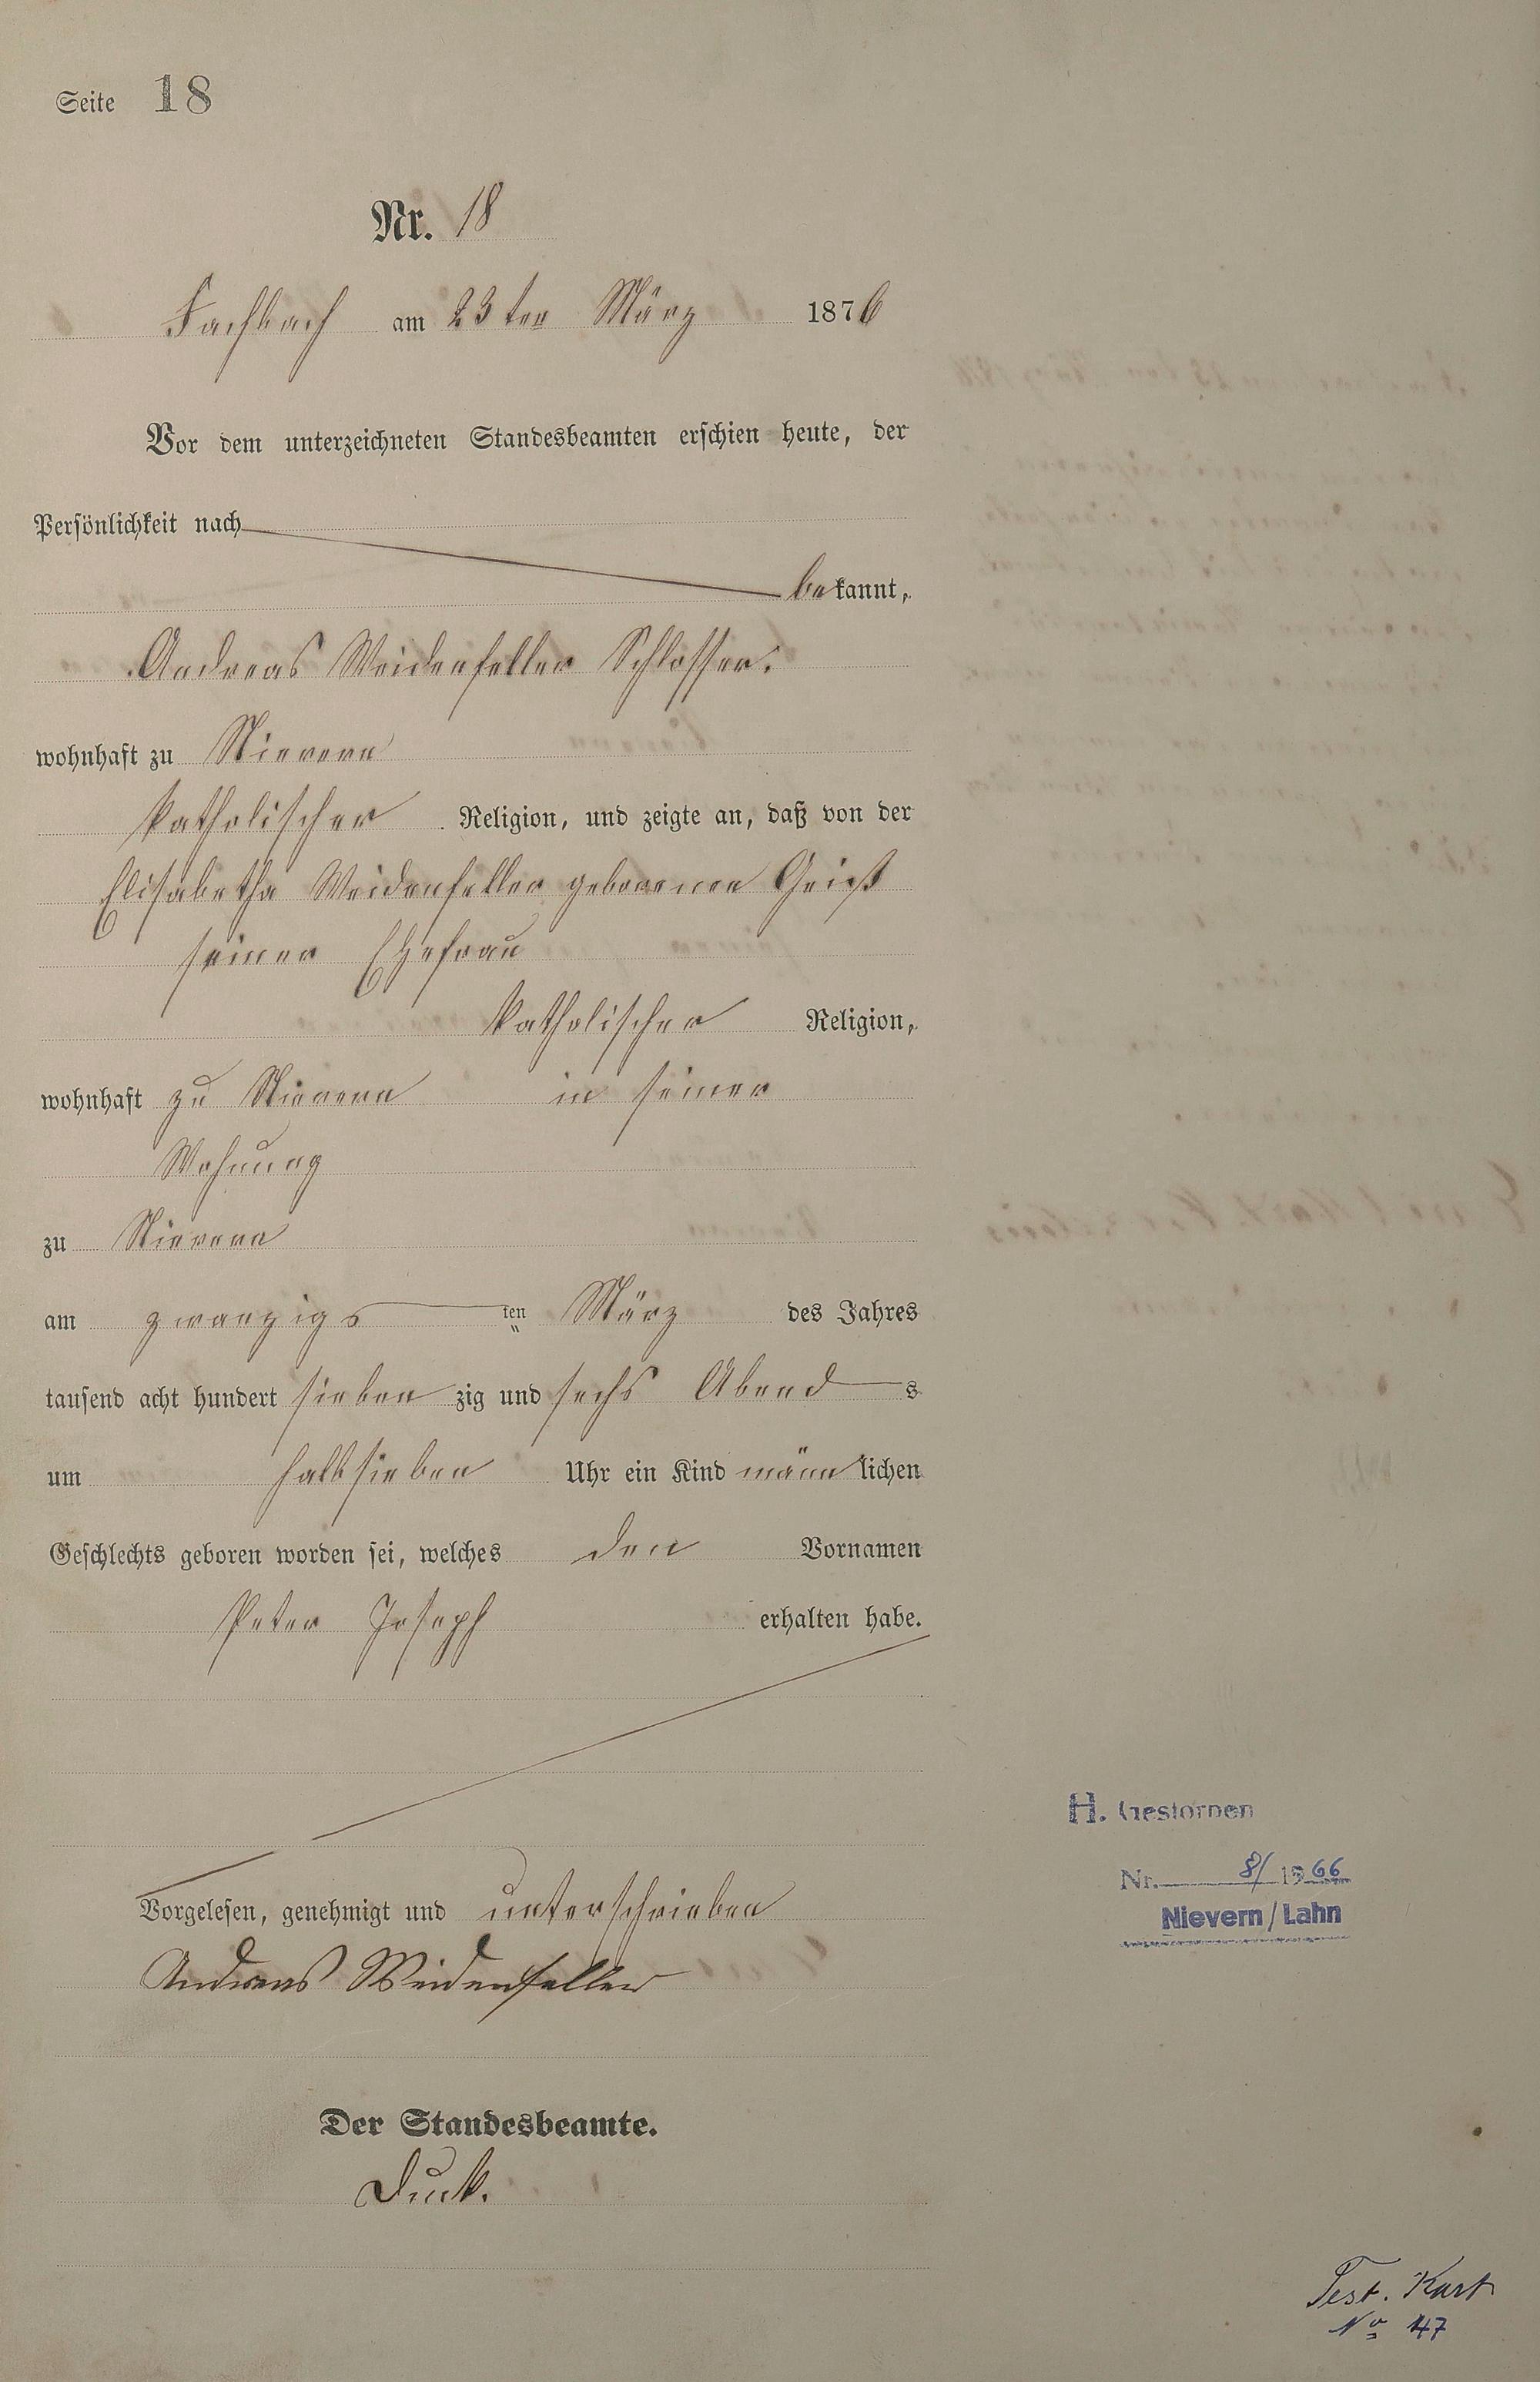 Seite 18
Nr. 18
Fachbach am 23ten März 1876
Vor dem unterzeichneten Standesbeamten erschien heute, der
Persönlichkeit nach
bekannt,
Andreas Weidenfeller Schlosser.
wohnhaft zu Nievern
katholischer Religion, und zeigte an, daß von der
Elisabetha Weidenfeller geborenen Geiß
seiner Ehefrau
katholischer Religion,
wohnhaft zu Nievern in seiner
Wohnung
zu Nievern
am zwanzigs ten März des Jahres
tausend acht hundert sieben zig und sechs Abend s
um halb sieben Uhr ein Kind männlichen
Geschlechts geboren worden sei, welches den Vornamen
Peter Joseph erhalten habe.
Vorgelesen, genehmigt und unterschrieben
Andreas Weidenfeller
Der Standesbeamte.
H. Gestorben
Nr. 8/1966
Nievern/Lahn
Test. Kart
No 47